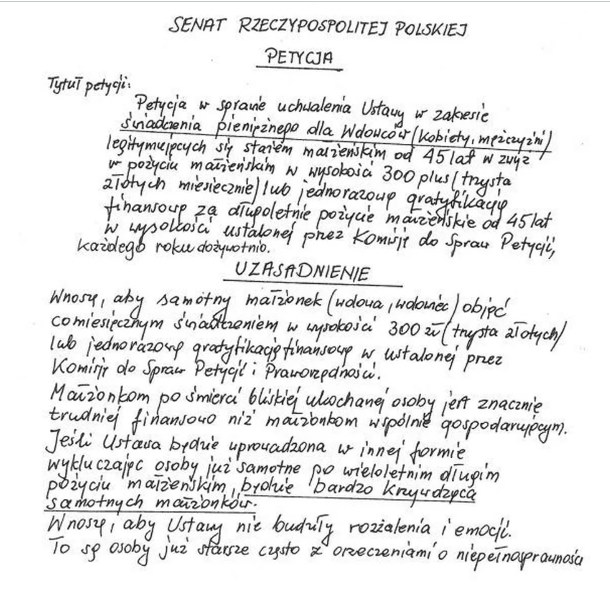 SENAT RZECZYPOSPOLITEJ POLSKIEJ
PETYCJA
Tytuł petycji:
Petycja w sprawie uchwalenia Ustawy w zakresie
świadczenia pieniężnego dla Wdowców (kobiety, mężczyźni)
legitymujących się stażem małżeńskim od 45 lat w zwyż
w pożyciu małżeńskim w wysokości 300 plus (trzysta
złotych miesięcznie) lub jednorazową gratyfikację
finansową za długoletnie pożycie małżeńskie od 45 lat
w wysokości ustalonej przez Komisję do Spraw Petycji,
każdego roku dożywotnio.
UZASADNIENIE
Wnoszę, aby samotny małżonek (wdowa, wdowiec) objąć
comiesięcznym świadczeniem w wysokości 300 zł (trzysta złotych)
lub jednorazową gratyfikację finansową w ustalonej przez
Komisję do Spraw Petycji i Praworządności.
Małżonkom po śmierci bliskiej ukochanej osoby jest znacznie
trudniej finansowo niż małżonkom wspólnie gospodarującym.
Jeśli Ustawa będzie wprowadzona w innej formie
wykluczając osoby już samotne po wieloletnim długim
pożyciu małżeńskim, będzie bardzo krzywdząca
samotnych małżonków.
Wnoszę, aby Ustawy nie budziły rozżalenia i emocji.
To są osoby już starsze często z orzeczeniami o niepełnosprawności